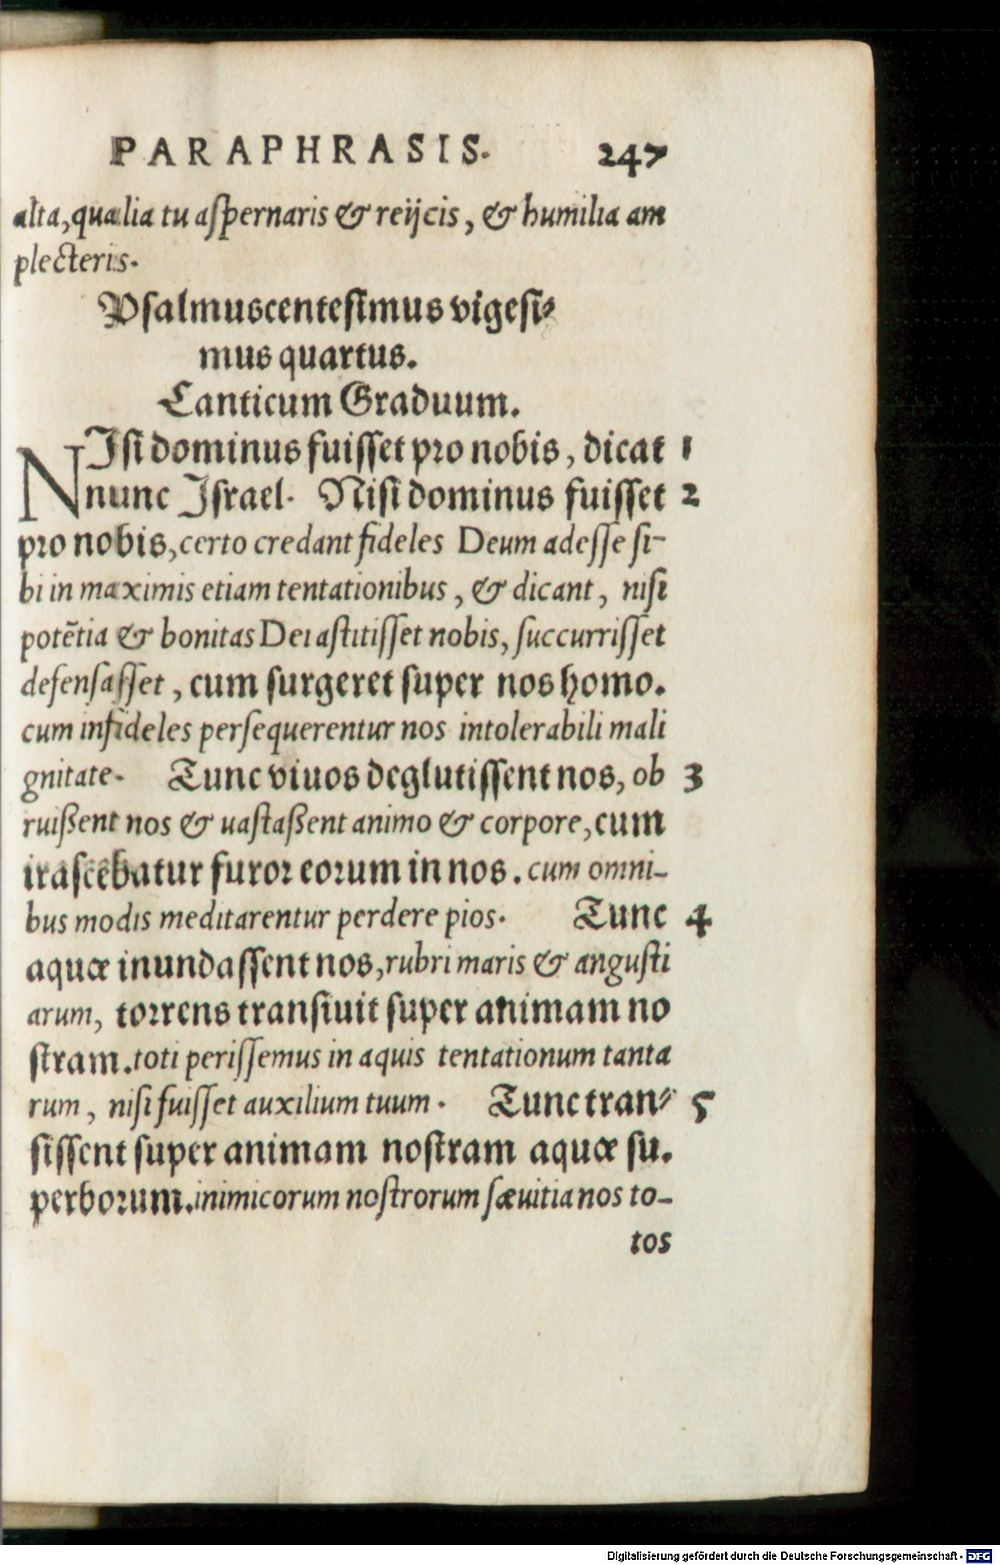 PARAPHRASIS. 247
alta, qualia tu aſpernaris & reijcis, & humilia am
plecteris.
Pſalmus centeſimus vigeſi⸗
mus quartus.
Canticum Graduum.
NIſi dominus fuiſſet pro nobis, dicat 1
nunc Iſrael. Niſi dominus fuiſſet 2
pro nobis, certo credant fideles Deum adeſſe ſi-
bi in maximis etiam tentationibus, & dicant, niſi
potẽtia & bonitas Dei aſtitiſſet nobis, ſuccurriſſet
defenſaſſet, cum ſurgeret ſuper nos homo.
cum infideles perſequerentur nos intolerabili mali
gnitate. Tunc viuos deglutiſſent nos, ob 3
ruißent nos & uaſtaßent animo & corpore, cum
iraſcẽbatur furor eorum in nos. cum omni-
bus modis meditarentur perdere pios. Tunc 4
aquæ inundaſſent nos, rubri maris & anguſti
arum, torrens tranſiuit ſuper animam no
ſtram. toti periſſemus in aquis tentationum tanta
rum, niſi fuiſſet auxilium tuum. Tunc tran⸗ 5
ſiſſent ſuper animam noſtram aquæ ſu.
perborum. inimicorum noſtrorum ſæuitia nos to-
tos
Digitalisierung gefördert durch die Deutsche Forschungsgemeinschaft - DFG